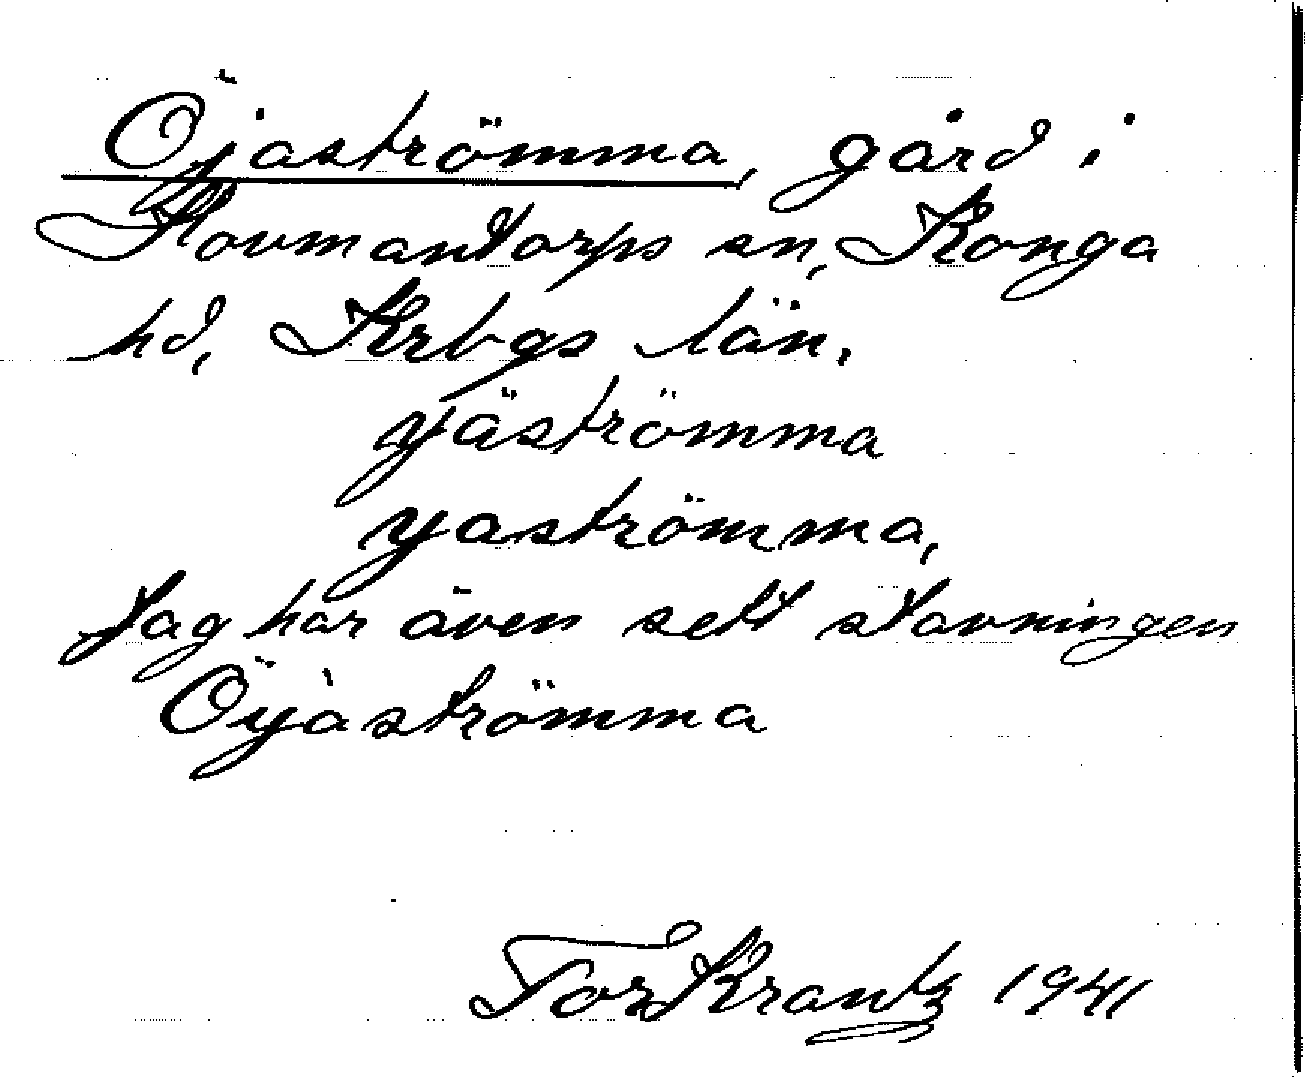 Öjaströmma, gård i
Hovmantorps sn, Konga
hd, Krbgs län.
yäströmma
yaströmma,
Jag har även sett stavningen
Öyaströmma
Tor Krantz 1941